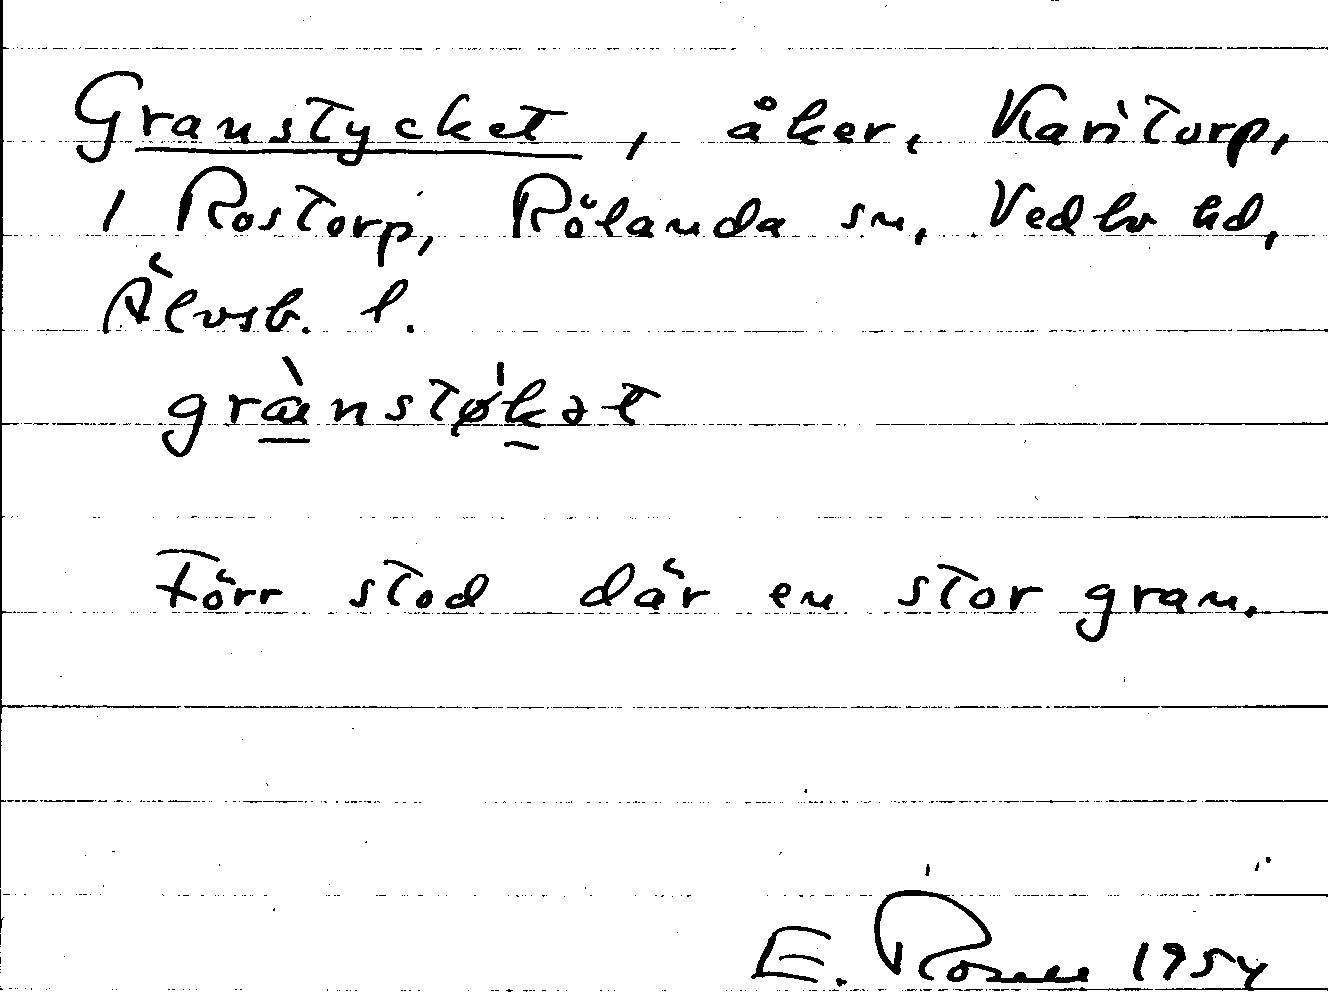 Granstycket, åker, Karitorp,
1 Rostorp, Rölanda sn, Vedbo hd,
Älvsb. l.
grànstø̀kət
Förr stod där en stor gran.
E. Rosell 1954